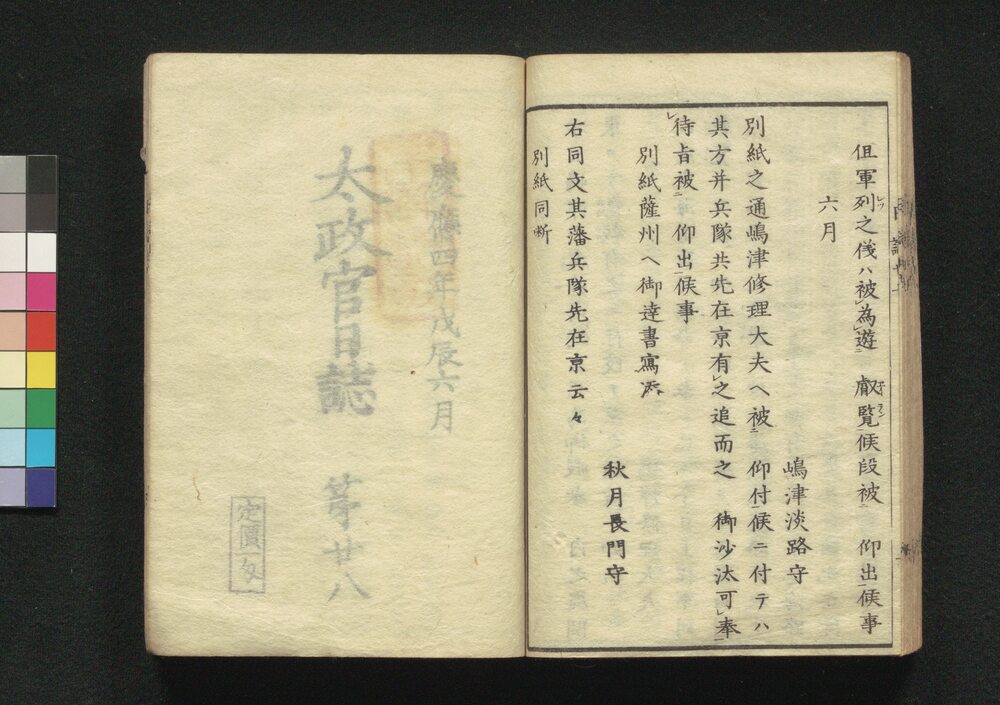 但軍列之儀ハ被為遊　叡覧候段被　仰出候事
六月
嶋津淡路守
別紙之通嶋津修理大夫ヘ被　仰付候ニ付テハ
其方并兵隊共先在京有之追而之　御沙汰可奉
待旨被　仰出候事
別紙薩州ヘ御達書寫添
秋月長門守
右同文其藩兵隊先在京云々
別紙同断
慶應四年戊辰六月
太政官日誌　第廿八
定價一匁